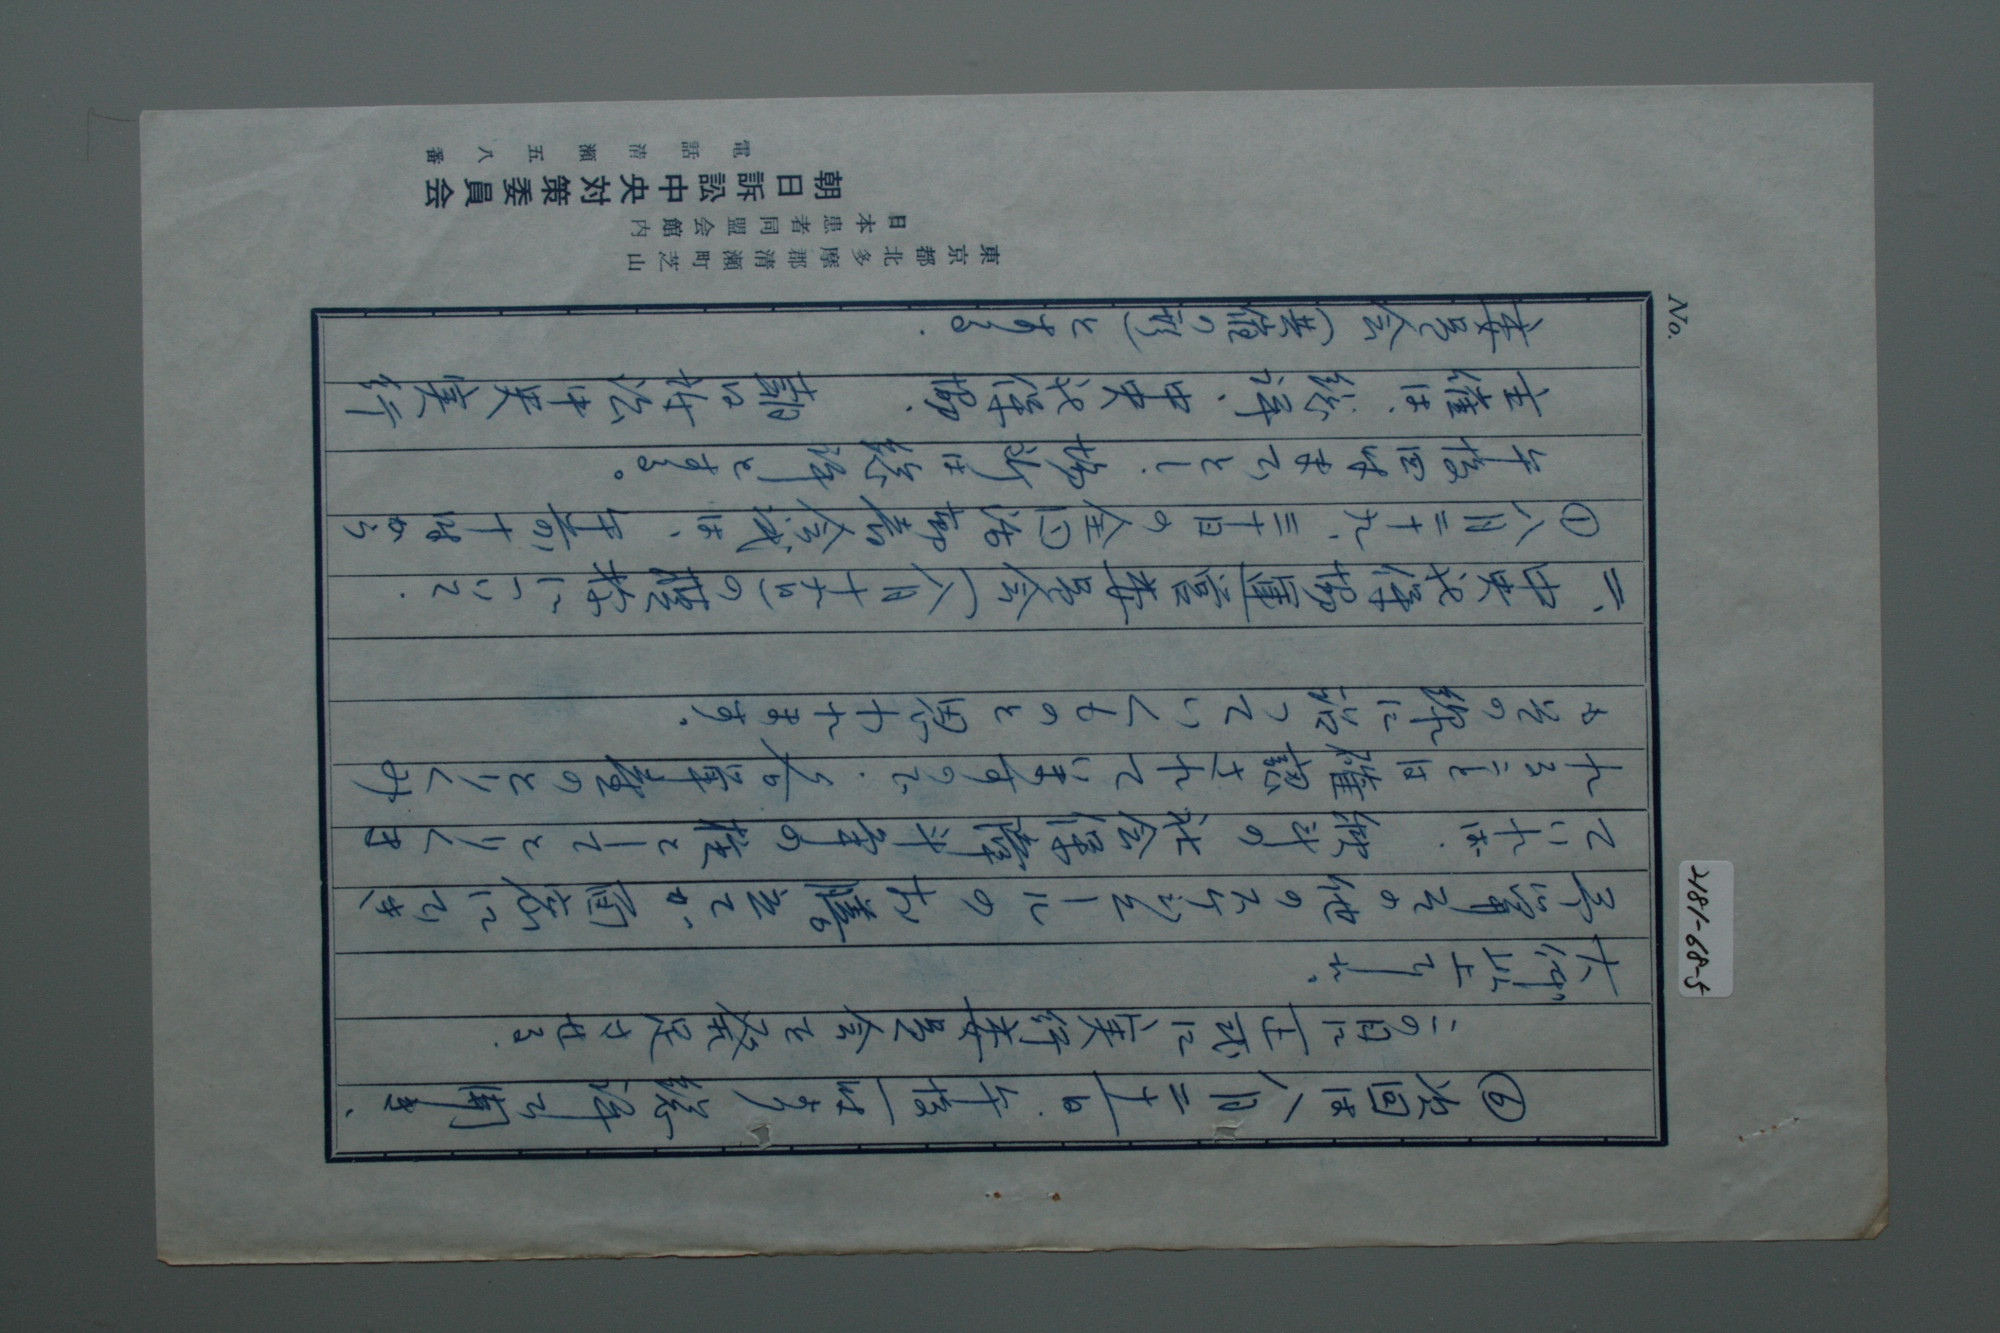 No.
⑥次回は八月二十一日、午後一時より総評で開き、
この日に正式に実行委員会を発足させる。
大体以上でした。
予算その他のスケジュールのお膳立てが にでき
ていれば、秋斗の社会保障斗争の柱としてとりくま
れることは確認されていますので、各単産のとりくみ
もその線に沿っていくものと思われます。
二、中央社保協運営委員会(八月十九日)の模様について.
①八月二十九、三十日の全国活動者会議は、午前十時から
午後四時までとし、場所は総評とする。
主催は、総評、中央社保協、朝日訴訟中央実行
委員会(共催の形)とする.
東京都北多摩郡清瀬町芝山
日本患者同盟会館内
朝日訴訟中央対策委員会
電話清瀬五八番
2181-68-5